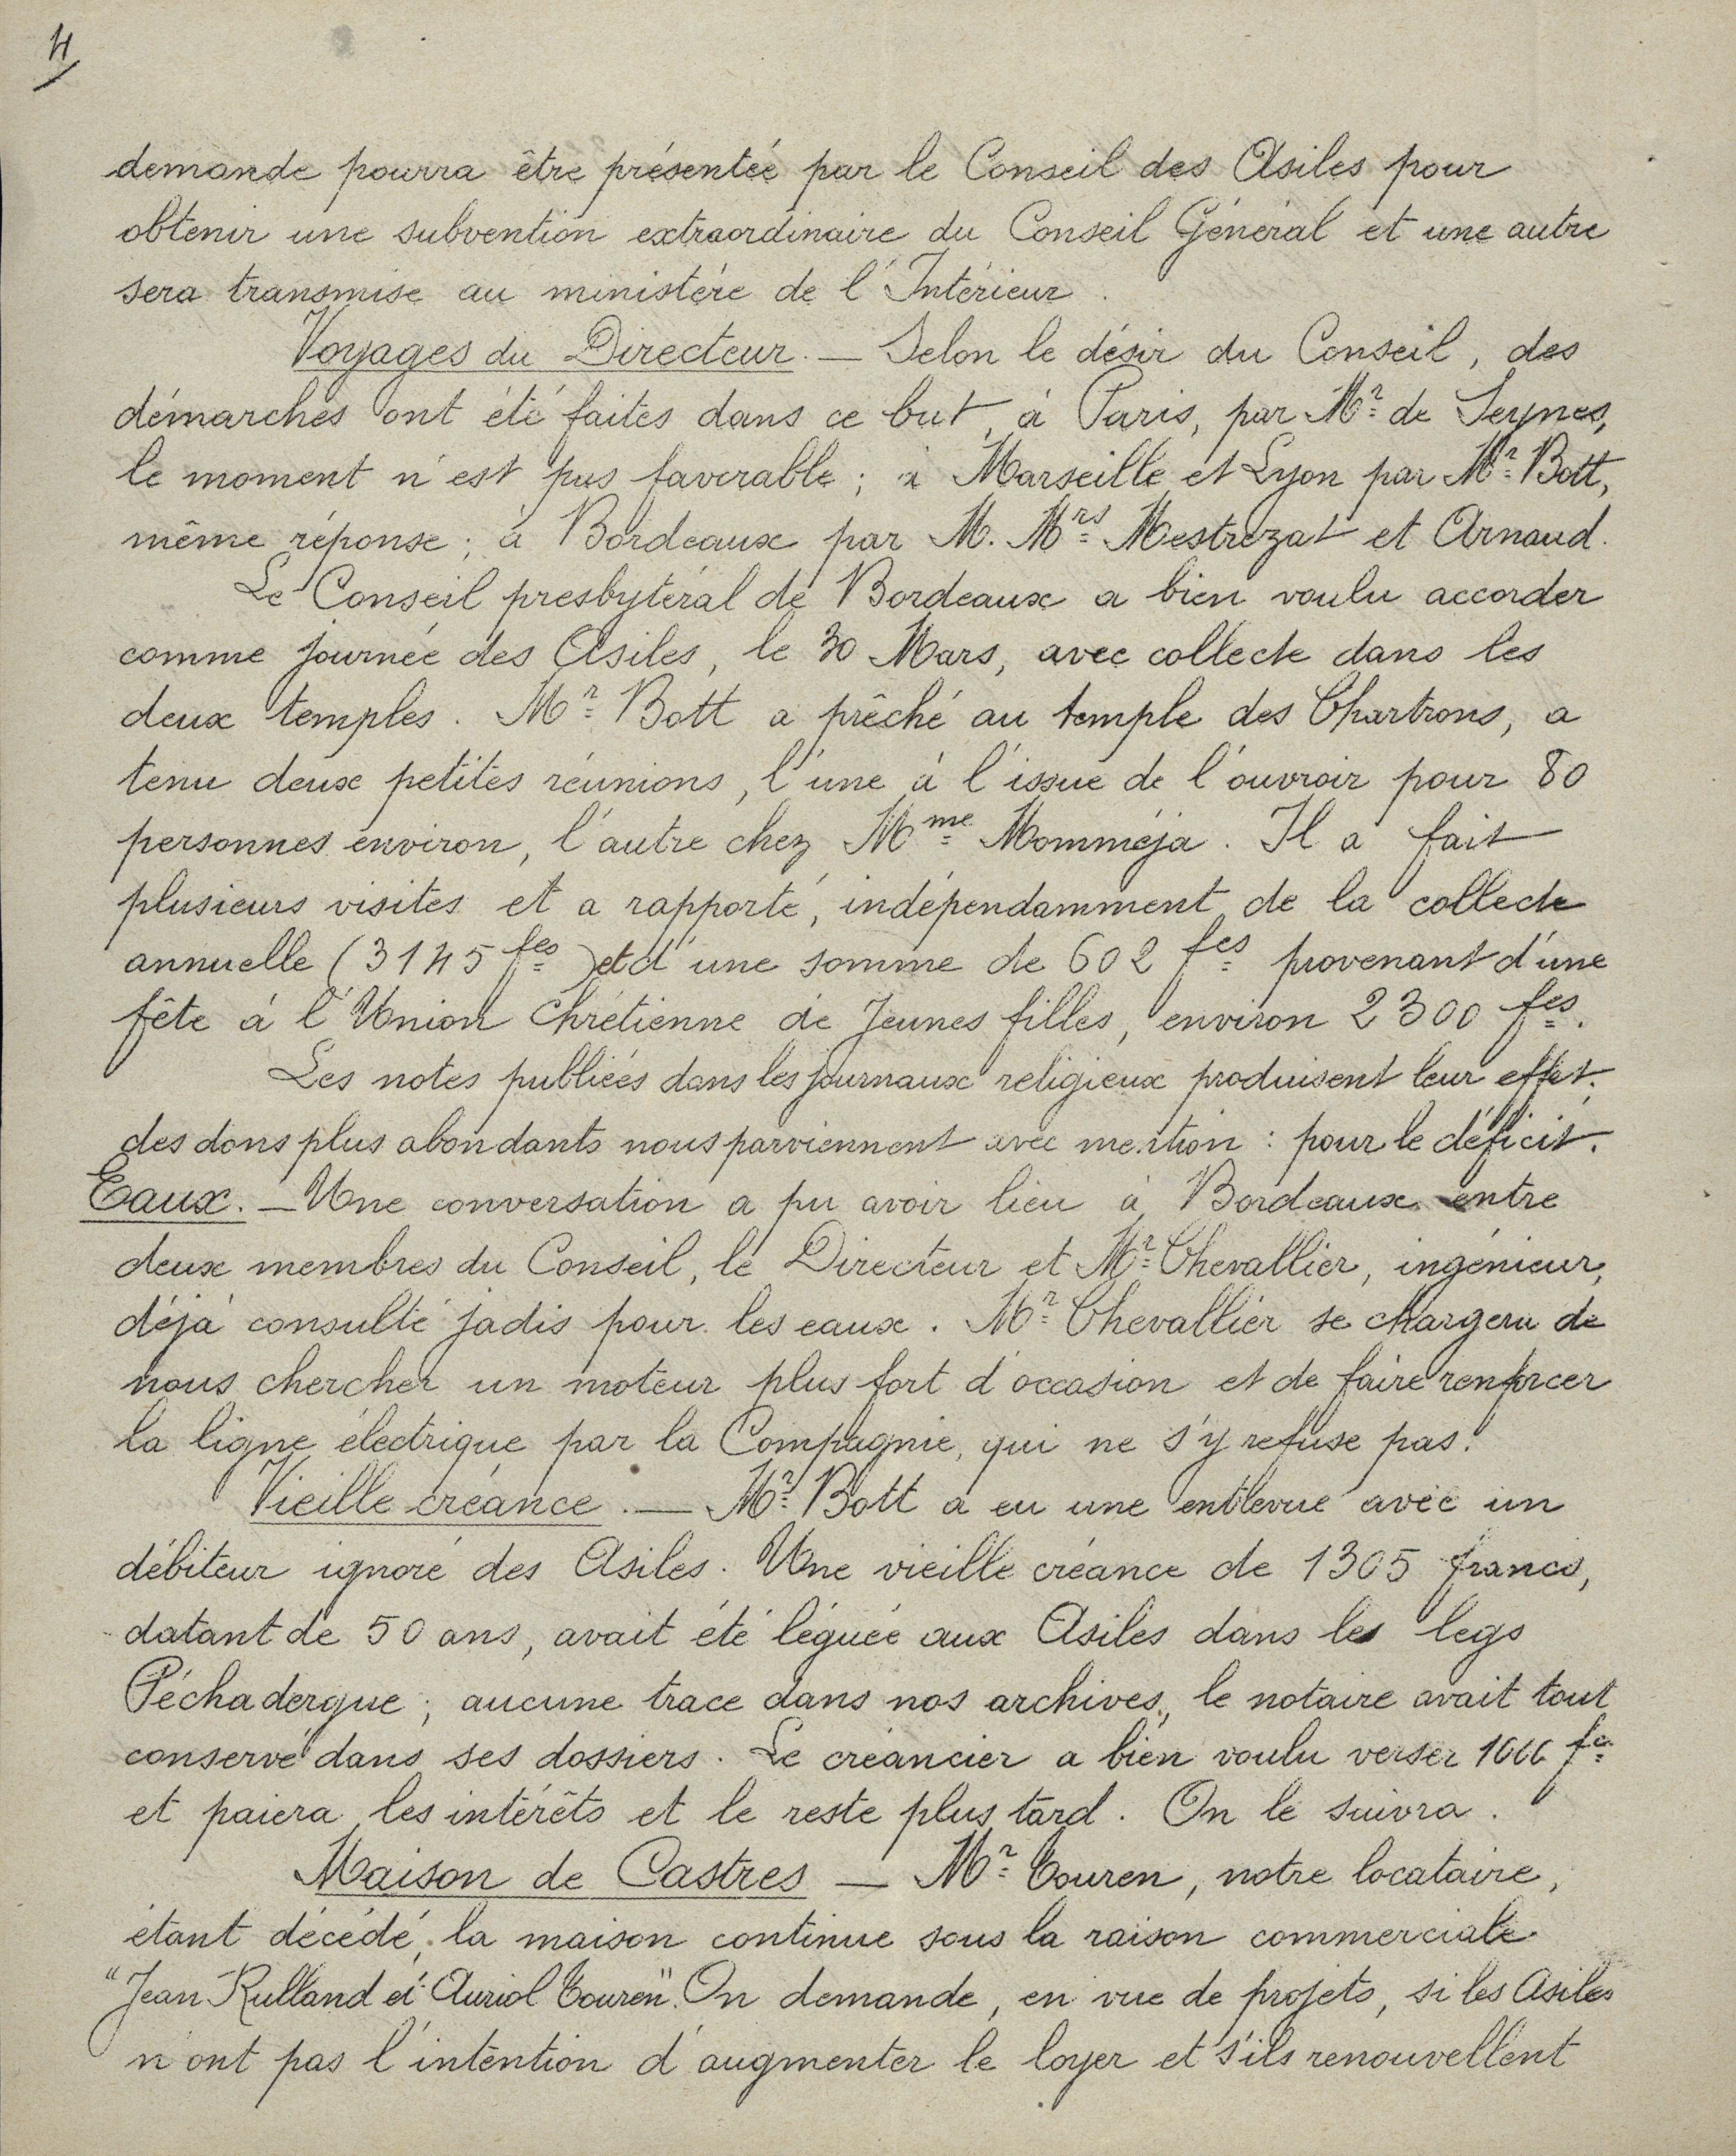 4
demande pourra être présentée par le Conseil des Asiles pour
obtenir une subvention extraordinaire du Conseil Général et une autre
sera transmise au ministère de l'Intérieur.
Voyages du Directeur. — Selon le désir du Conseil, des
démarches ont été faites dans ce but, à Paris, par Mr de Seynes,
le moment n'est pas favorable ; à Marseille et Lyon par Mr Bott,
même réponse ; à Bordeaux par M. Mrs Mestrezat et Arnaud.
Le Conseil presbytéral de Bordeaux a bien voulu accorder
comme journée des Asiles, le 30 Mars, avec collecte dans les
deux temples. Mr Bott a prêché au temple des Chartrons, a
tenu deux petites réunions, l'une à l'issue de l'ouvroir pour 80
personnes environ, l'autre chez Mme Momméja. Il a fait
plusieurs visites et a rapporté, indépendamment de la collecte
annuelle (3145 fcs) et d'une somme de 602 fcs provenant d'une
fête à l'Union Chrétienne de Jeunes filles, environ 2300 fcs.
Les notes publiées dans les journaux religieux produisent leur effet.
des dons plus abondants nous parviennent avec mention : pour le déficit.
Eaux. — Une conversation a pu avoir lieu à Bordeaux entre
deux membres du Conseil, le Directeur et Mr Chevallier, ingénieur,
déjà consulté jadis pour les eaux. Mr Chevallier se chargera de
nous chercher un moteur plus fort d'occasion et de faire renforcer
la ligne électrique par la Compagnie, qui ne s'y refuse pas.
Vieille créance. — Mr Bott a eu une entrevue avec un
débiteur ignoré des Asiles. Une vieille créance de 1305 francs,
datant de 50 ans, avait été léguée aux Asiles dans les legs
Péchadergue ; aucune trace dans nos archives, le notaire avait tout
conservé dans ses dossiers. Le créancier a bien voulu verser fcs
et paiera les intérêts et le reste plus tard. On le suivra.
Maison de Castres — Mr Couren, notre locataire,
étant décédé, la maison continue sous la raison commerciale
"Jean Rulland et Auriol Couren". On demande, en vue de projets, si les Asiles
n'ont pas l'intention d'augmenter le loyer et s'ils renouvellent